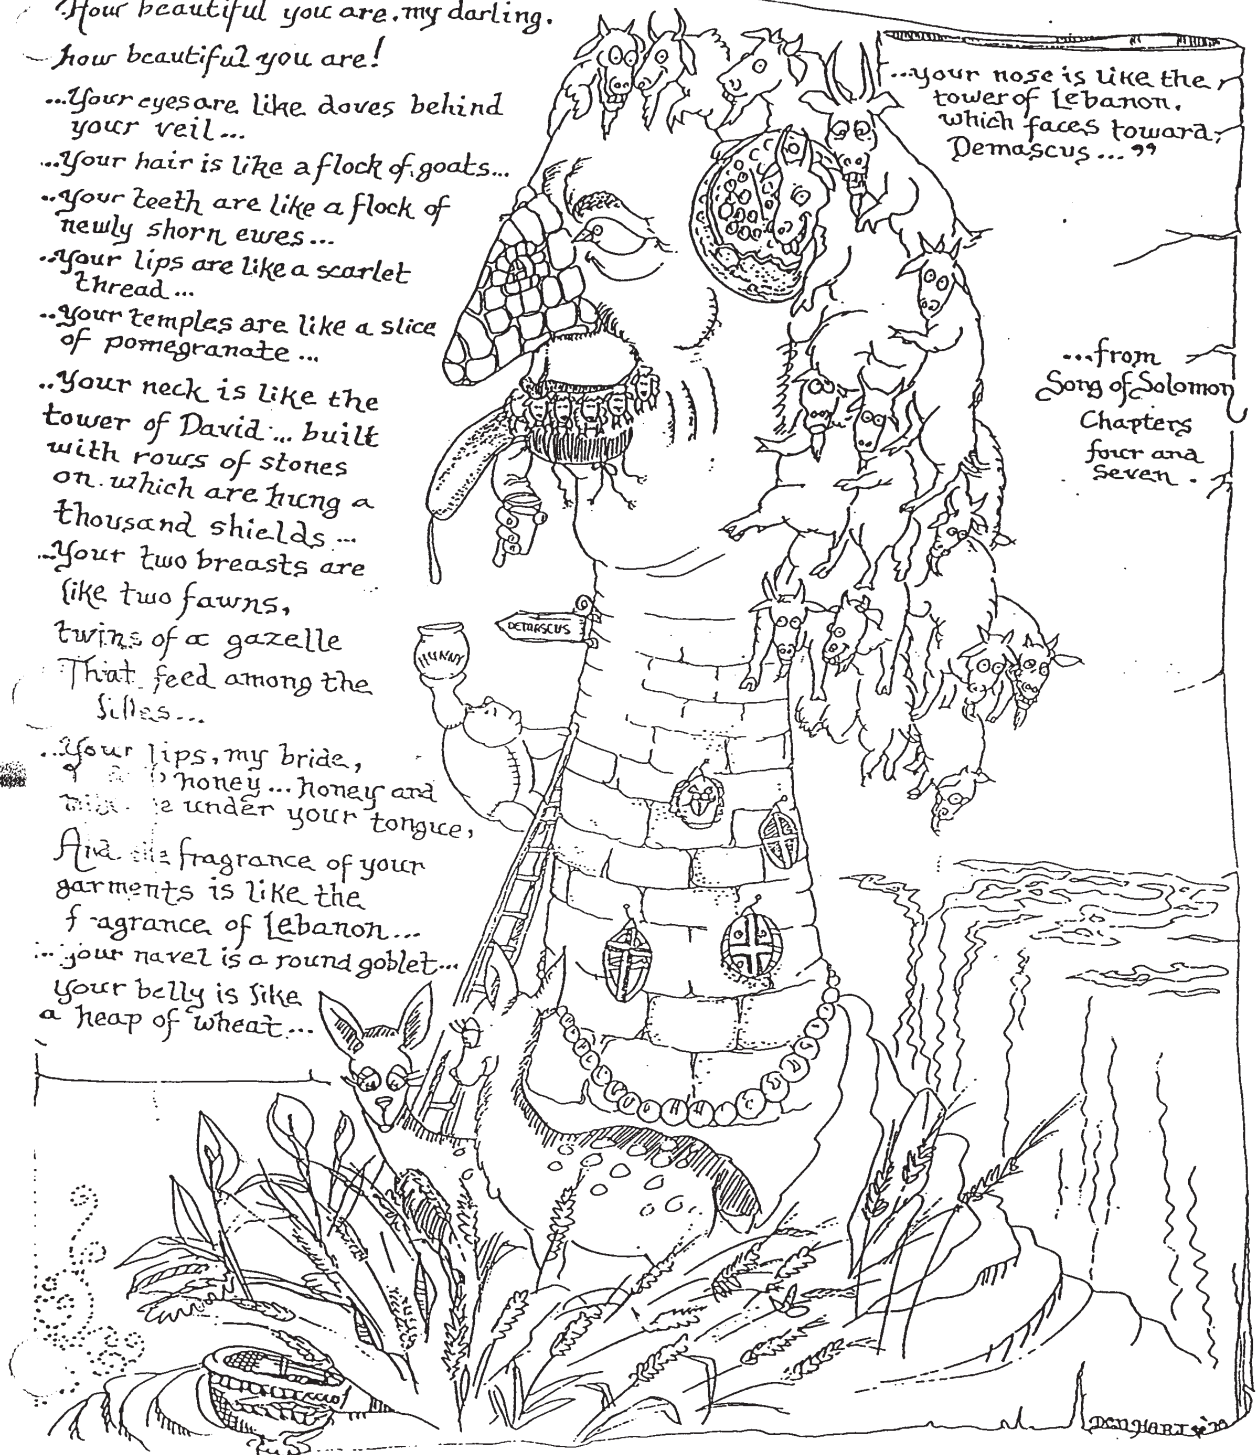 "How beautiful you are, my darling.
how beautiful you are!
...Your eyes are like doves behind
your veil...
...Your hair is like a flock of goats...
...your teeth are like a flock of
newly shorn ewes...
...your lips are like a scarlet
thread...
...your temples are like a slice
of pomegranate...
...Your neck is like the
tower of David... built
with rows of stones
on which are hung a
thousand shields...
...Your two breasts are
like two fawns,
twins of a gazelle
That feed among the
lilies...
...Your lips, my bride,
honey... honey and
under your tongue,
And the fragrance of your
garments is like the
fragrance of Lebanon...
... your navel is a round goblet...
your belly is like
a heap of wheat...
...your nose is like the
tower of Lebanon.
which faces toward,
Demascus..."
...from
Song of Solomon
Chapters
four and
seven.
DEMASCUS
HUNNY
DEN HART